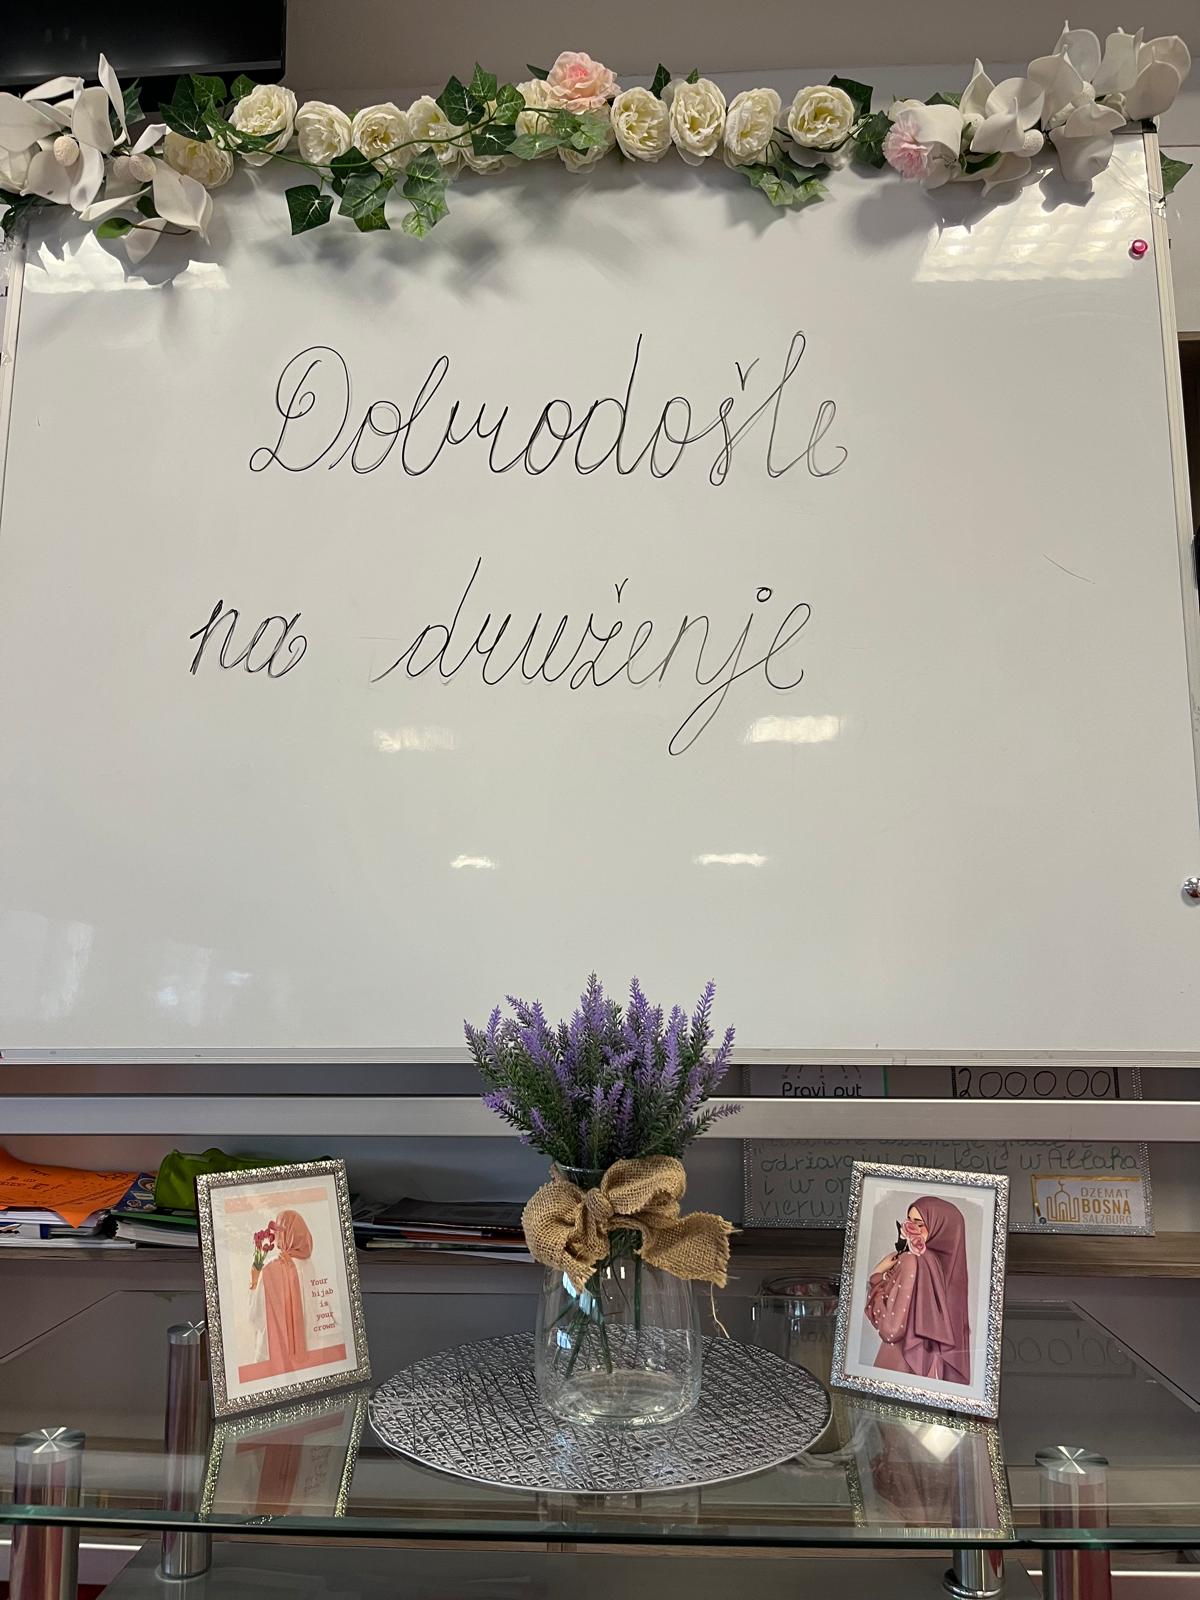 Dobrodošle
na druženje
Pravi put
2000.00
"održavaju oni koji u Allaha
i u
DŽEMAT
BOSNA
SALZBURG
Your
hijab
is
your
crown